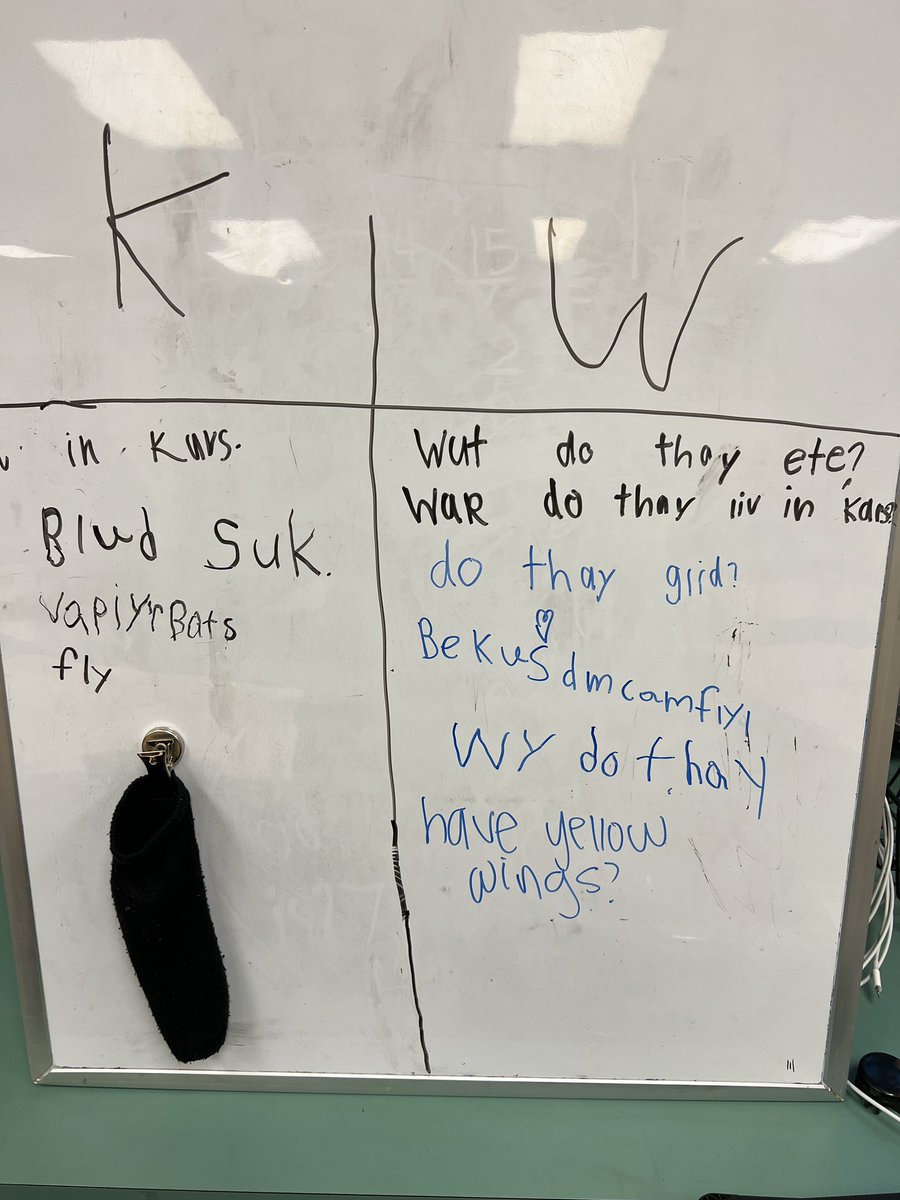 K
W
in Kavs.
Blud Suk.
VapiyrBats
fly
Wut do thay ete?
WAR do thay liv in kavs?
do thay glid?
BeKuS dm camfly,
WY do thay
have yellow
wings?